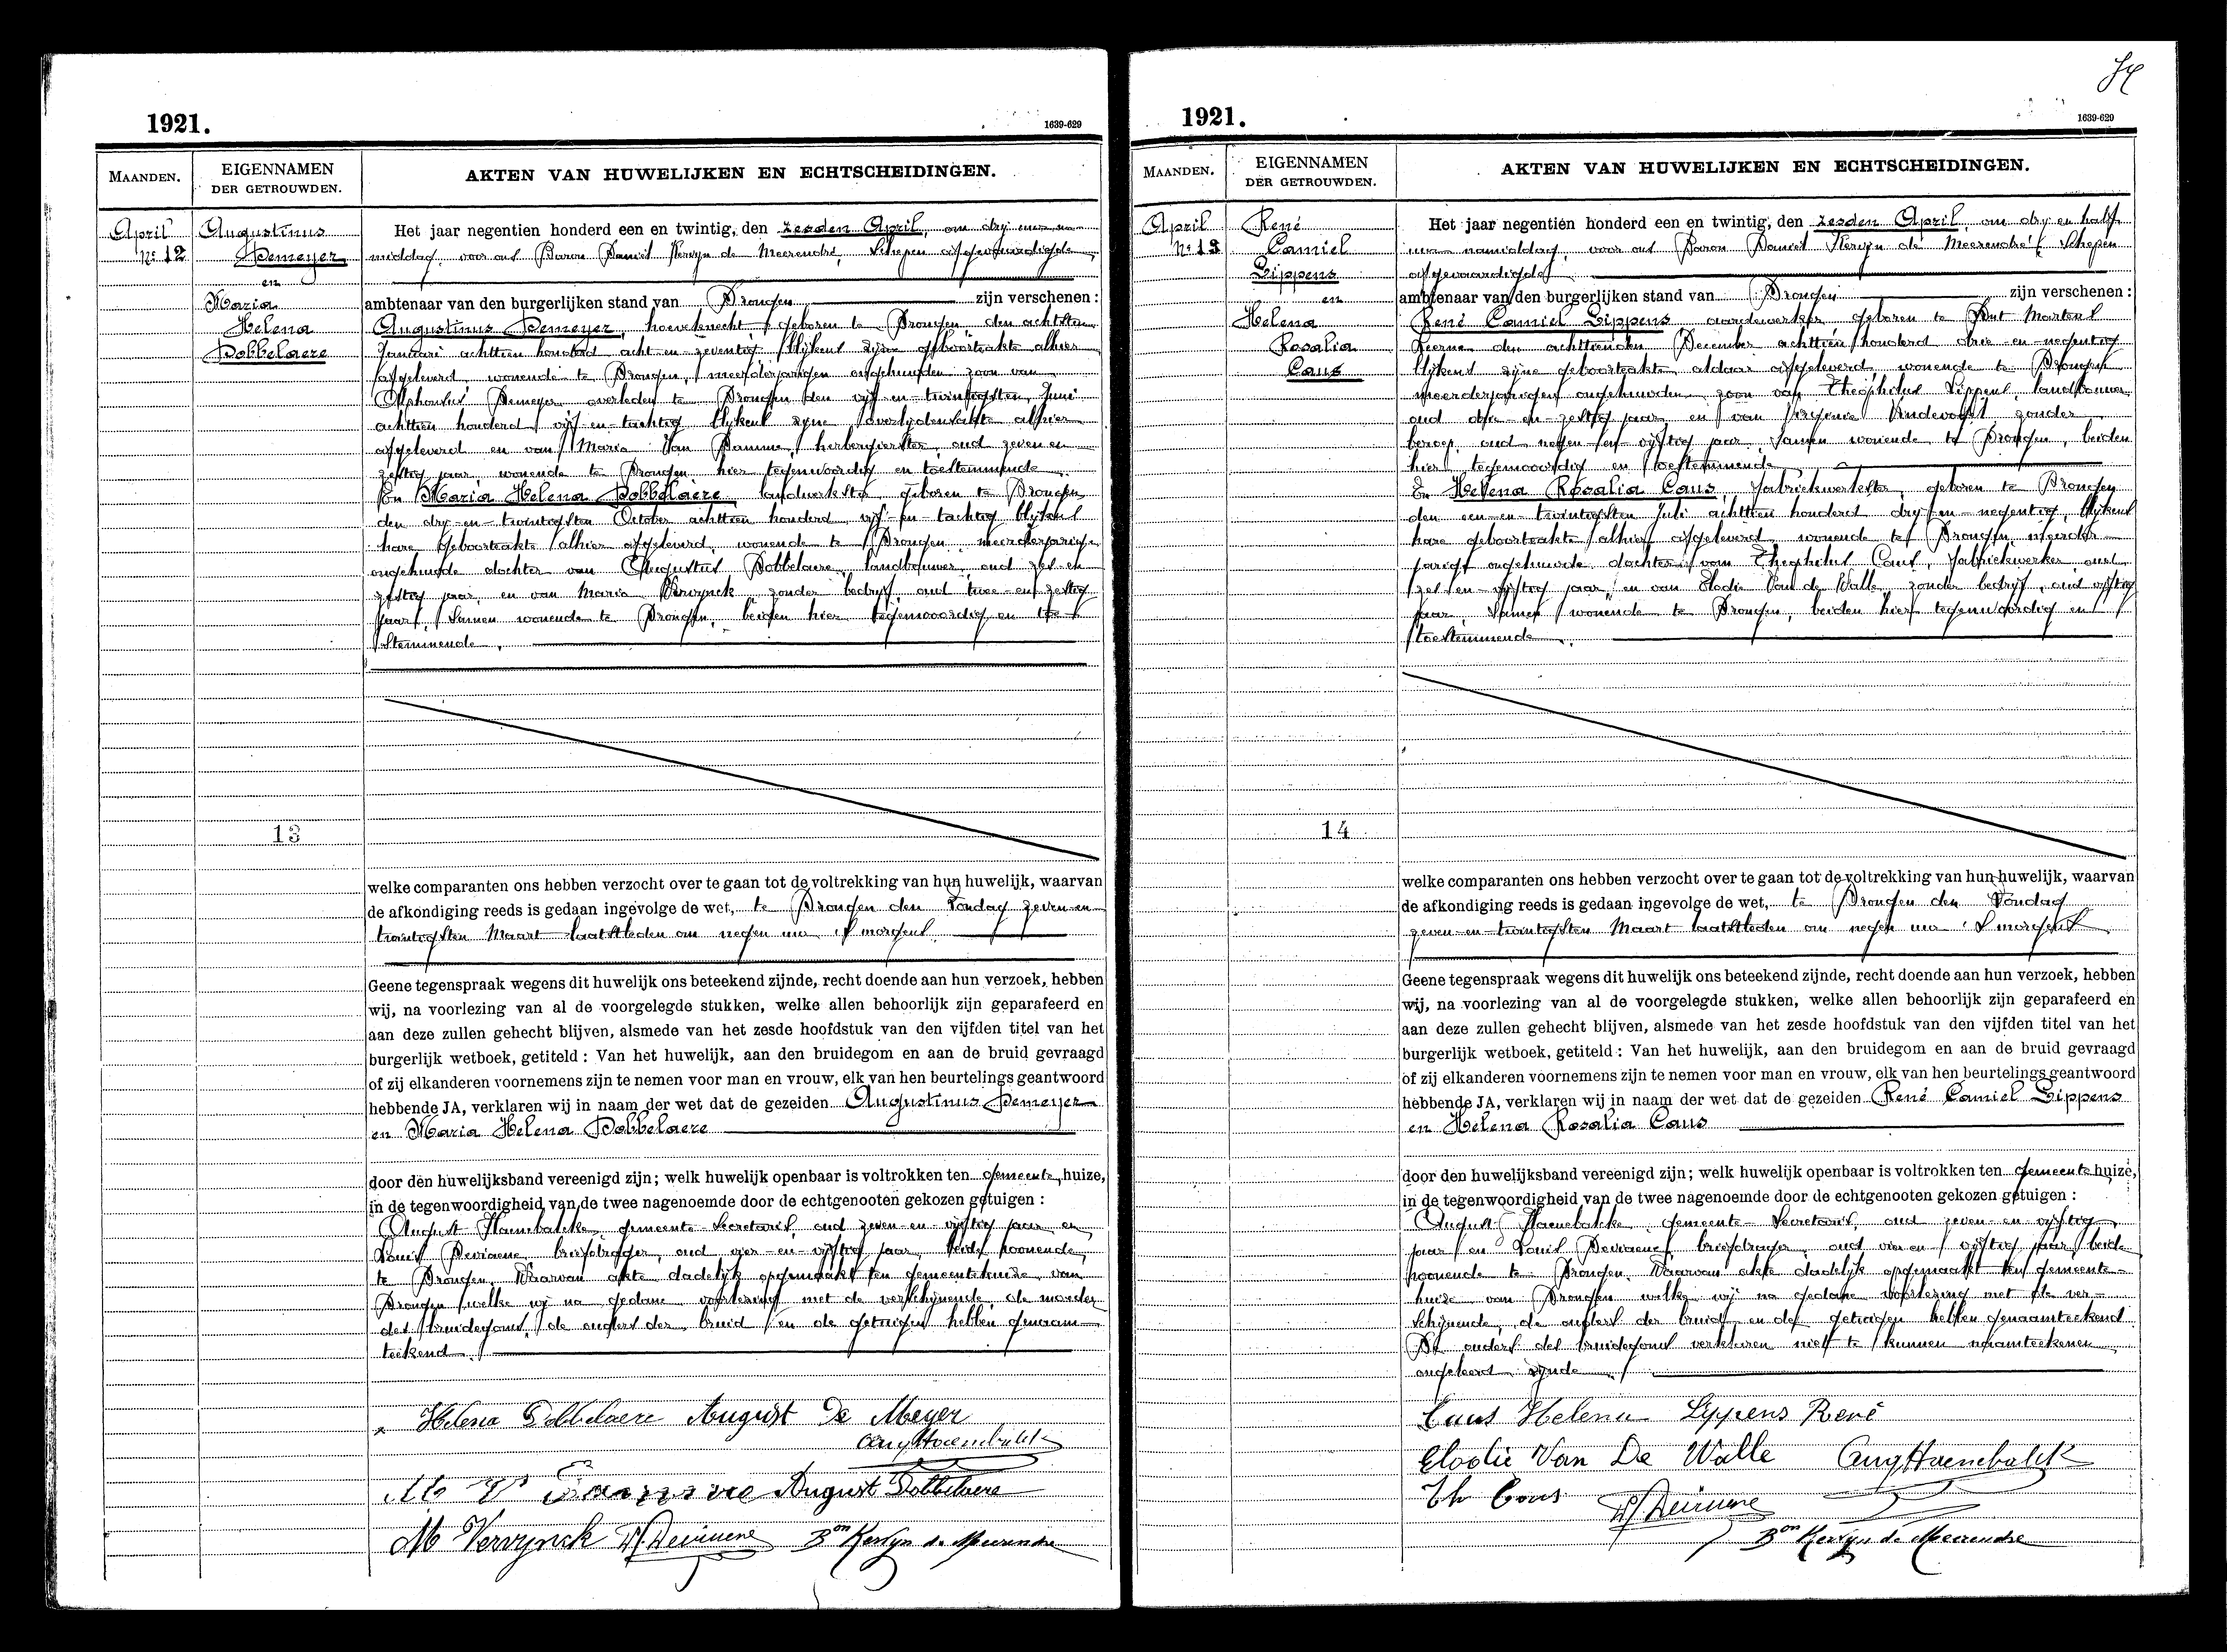 1921.
1639-629
MAANDEN.
EIGENNAMEN
DER GETROUWDEN.
AKTEN VAN HUWELIJKEN EN ECHTSCHEIDINGEN.
April
No 12
Augustinus
Demeyer
en
Maria
Helena
Dobbelaere
13
Het jaar negentien honderd een en twintig, den zesden April, om dry uren na
middag, voor ons Baron Daniël Kervyn de Meerendré, Schepen afgevaardigde
ambtenaar van den burgerlijken stand van Drongen zijn verschenen :
Augustinus Demeyer, hoeveknecht, geboren te Drongen, den achtsten
Januari achttien honderd acht en zeventig, blijkens zijne geboorteakte alhier
afgeleverd, wonende te Drongen, meerderjarigen ongehuwden zoon van
Alphonsus Demeyer overleden te Drongen den vijf en twintigsten Juni
achttien honderd vijf-en-tachtig blijkens zijne overlijdensakte alhier
afgeleverd en van Maria Van Damme, herbergierster, oud zeven en
zestig jaar, wonende te Drongen hier tegenwoordig en toestemmende
En Maria Helena Dobbelaere landwerkster, geboren te Drongen
den dry-en-twintigsten October achttien honderd vijf-en-tachtig blijkens
hare geboorteakte alhier afgeleverd, wonende te Drongen, meerderjarige
ongehuwde dochter van Augustus Dobbelaere, landbouwer, oud zes en
zestig jaar, en van Maria Vervynck, zonder bedrijf, oud twee-en-zestig
jaar, samen wonende te Drongen, beiden hier tegenwoordig en toe
stemmende.
welke comparanten ons hebben verzocht over te gaan tot de voltrekking van hun huwelijk, waarvan
de afkondiging reeds is gedaan ingevolge de wet, te Drongen den Zondag zeven-en
twintigsten Maart laatstleden om negen ure 's morgens.
Geene tegenspraak wegens dit huwelijk ons beteekend zijnde, recht doende aan hun verzoek, hebben
wij, na voorlezing van al de voorgelegde stukken, welke allen behoorlijk zijn geparafeerd en
aan deze zullen gehecht blijven, alsmede van het zesde hoofdstuk van den vijfden titel van het
burgerlijk wetboek, getiteld : Van het huwelijk, aan den bruidegom en aan de bruid gevraagd
of zij elkanderen voornemens zijn te nemen voor man en vrouw, elk van hen beurtelings geantwoord
hebbende JA, verklaren wij in naam der wet dat de gezeiden Augustinus Demeyer
en Maria Helena Dobbelaere
door den huwelijksband vereenigd zijn; welk huwelijk openbaar is voltrokken ten gemeente huize,
in de tegenwoordigheid van de twee nagenoemde door de echtgenooten gekozen getuigen :
August Haenebalcke, gemeente-secretaris, oud zeven-en-vijftig jaar en
Louis Deviaene, briefdrager, oud vier-en-vijftig jaar, beide woonende
te Drongen. Waarvan akte dadelijk opgemaakt ten gemeentehuize van
Drongen welke wij na gedane voorlezing met de verschijnende, de moeder
des bruidegoms, de ouders der bruid en de getuigen hebben genaam-
teekend.
Helena Dobbelaere August De Meyer
Aug Haenebalck
M V Damme August Dobbelaere
M Vervynck
Bon Kervyn de Meerendre
1921.
1639-629
MAANDEN.
EIGENNAMEN
DER GETROUWDEN.
AKTEN VAN HUWELIJKEN EN ECHTSCHEIDINGEN.
April
No 13
René
Camiel
Lippens
en
Helena
Rosalia
Caus
14
Het jaar negentien honderd een en twintig, den zesden April, om dry en half
uren namiddag, voor ons Baron Daniël Kervyn de Meerendré, Schepen
afgevaardigde
ambtenaar van den burgerlijken stand van Drongen zijn verschenen :
René Camiel Lippens aardewerker geboren te Sint Martens
Leerne den achttienden December achttien honderd drie-en-negentig
blijkens zijne geboorteakte aldaar afgeleverd, wonende te Drongen
meerderjarigen ongehuwden zoon van Theophilus Lippens, landbouwer
oud drie-en-zestig jaar, en van Virginie Vindevogel zonder
beroep, oud negen-en-vijftig jaar, samen wonende te Drongen, beiden
hier tegenwoordig en toestemmende
En Helena Rosalia Caus, fabriekwerkster, geboren te Drongen
den een-en-twintigsten Juli achttien honderd dry-en-negentig, blijkens
hare geboorteakte alhier afgeleverd wonende te Drongen, meerder-
jarige ongehuwde dochter van Theophilus Caus, fabriekwerker, oud
zes-en-vijftig jaar, en van Elodie Van de Walle, zonder bedrijf, oud vijftig
jaar, samen wonende te Drongen, beiden hier tegenwoordig en
toestemmende.
welke comparanten ons hebben verzocht over te gaan tot de voltrekking van hun huwelijk, waarvan
de afkondiging reeds is gedaan ingevolge de wet, te Drongen den Zondag
zeven-en-twintigsten Maart laatstleden om negen ure 's morgens
Geene tegenspraak wegens dit huwelijk ons beteekend zijnde, recht doende aan hun verzoek, hebben
wij, na voorlezing van al de voorgelegde stukken, welke allen behoorlijk zijn geparafeerd en
aan deze zullen gehecht blijven, alsmede van het zesde hoofdstuk van den vijfden titel van het
burgerlijk wetboek, getiteld : Van het huwelijk, aan den bruidegom en aan de bruid gevraagd
of zij elkanderen voornemens zijn te nemen voor man en vrouw, elk van hen beurtelings geantwoord
hebbende JA, verklaren wij in naam der wet dat de gezeiden René Camiel Lippens
en Helena Rosalia Caus
door den huwelijksband vereenigd zijn; welk huwelijk openbaar is voltrokken ten gemeente huize,
in de tegenwoordigheid van de twee nagenoemde door de echtgenooten gekozen getuigen :
August Haenebalcke, gemeente-Secretaris, oud zeven-en-vijftig
jaar en Louis Deviaene, briefdrager, oud vier en vijftig jaar, beide
woonende te Drongen. Waarvan akte dadelijk opgemaakt ten gemeente-
huize van Drongen welke wij na gedane voorlezing met de ver-
schijnende, de ouders der bruid en de getuigen hebben genaamteekend
De ouders des bruidegoms verklaren niet te kunnen naamteekenen
ongeleerd zijnde
Caus Helena Lippens René
Elodie Van De Walle Aug Haenebalck
Th Caus
Bon Kervyn de Meerendre